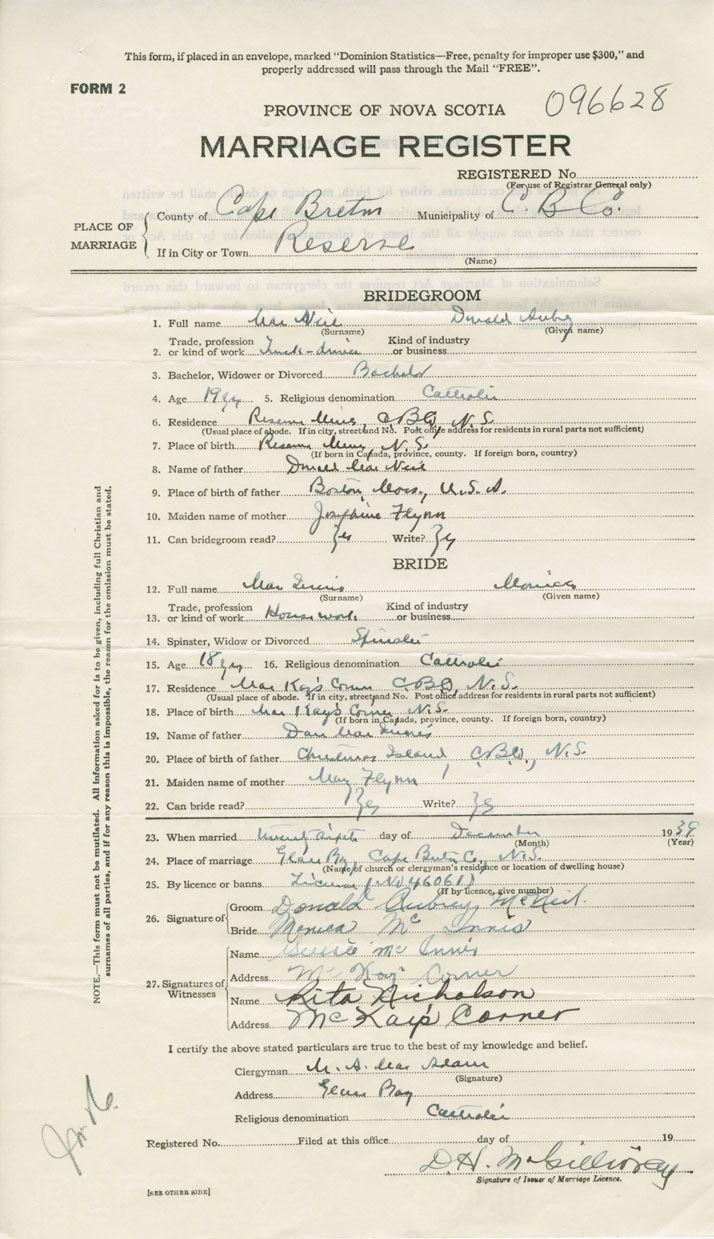 This form, if placed in an envelope, marked “Dominion Statistics—Free, penalty for improper use $300,” and
properly addressed will pass through the Mail “FREE”.
FORM 2
096628
PROVINCE OF NOVA SCOTIA
MARRIAGE REGISTER
REGISTERED No.
(For use of Registrar General only)
PLACE OF MARRIAGE
County of Cape Breton Municipality of C. B Co.
If in City or Town Reserve
(Name)
BRIDEGROOM
1. Full name Mac Neil Donald Aubrey
(Surname) (Given name)
Trade, profession Kind of industry
2. or kind of work Truck-driver or business
3. Bachelor, Widower or Divorced Bachelor
4. Age 19 yrs 5. Religious denomination Catholic
6. Residence Reserve Mines, C.B.Co, N.S.
(Usual place of abode. If in city, street and No. Post office address for residents in rural parts not sufficient)
7. Place of birth Reserve Mines, N.S.
(If born in Canada, province, county. If foreign born, country)
8. Name of father Donald Mac Neil
9. Place of birth of father Boston, Mass, U.S.A.
10. Maiden name of mother Josephine Flynn
11. Can bridegroom read? Yes Write? Yes
BRIDE
12. Full name Mac Innis Monica
(Surname) (Given name)
Trade, profession Kind of industry
13. or kind of work Housework or business
14. Spinster, Widow or Divorced Spinster
15. Age 18 yrs 16. Religious denomination Catholic
17. Residence Mac Kay's Corner C.B.Co, N.S.
(Usual place of abode. If in city, street and No. Post office address for residents in rural parts not sufficient)
18. Place of birth Mac Kay's Corner N.S.
(If born in Canada, province, county. If foreign born, country)
19. Name of father Dan Mac Innis
20. Place of birth of father Christmas Island C.B.Co., N.S.
21. Maiden name of mother May Flynn
22. Can bride read? Yes Write? Yes
23. When married day of December 1939
(Month) (Year)
24. Place of marriage Glace Bay, Cape Breton Co., N.S.
(Name of church or clergyman's residence or location of dwelling house)
25. By licence or banns License (No 46061)
(If by licence, give number)
26. Signature of
Groom Donald Aubrey McNeil.
Bride Monica Mc Innis
27. Signatures of Witnesses
Name Mc Innis
Address Mc Kay Corner
Name Rita Nicholson
Address McKay's Corner
I certify the above stated particulars are true to the best of my knowledge and belief.
Clergyman M. A. Mac Adam
(Signature)
Address Glace Bay
Religious denomination Catholic
Registered No. Filed at this office day of 19
D.H. McGillivray
Signature of Issuer of Marriage Licence.
[SEE OTHER SIDE]
NOTE.—This form must not be mutilated. All information asked for is to be given, including full Christian and
surnames of all parties, and if for any reason this is impossible, the reason for the omission must be stated.